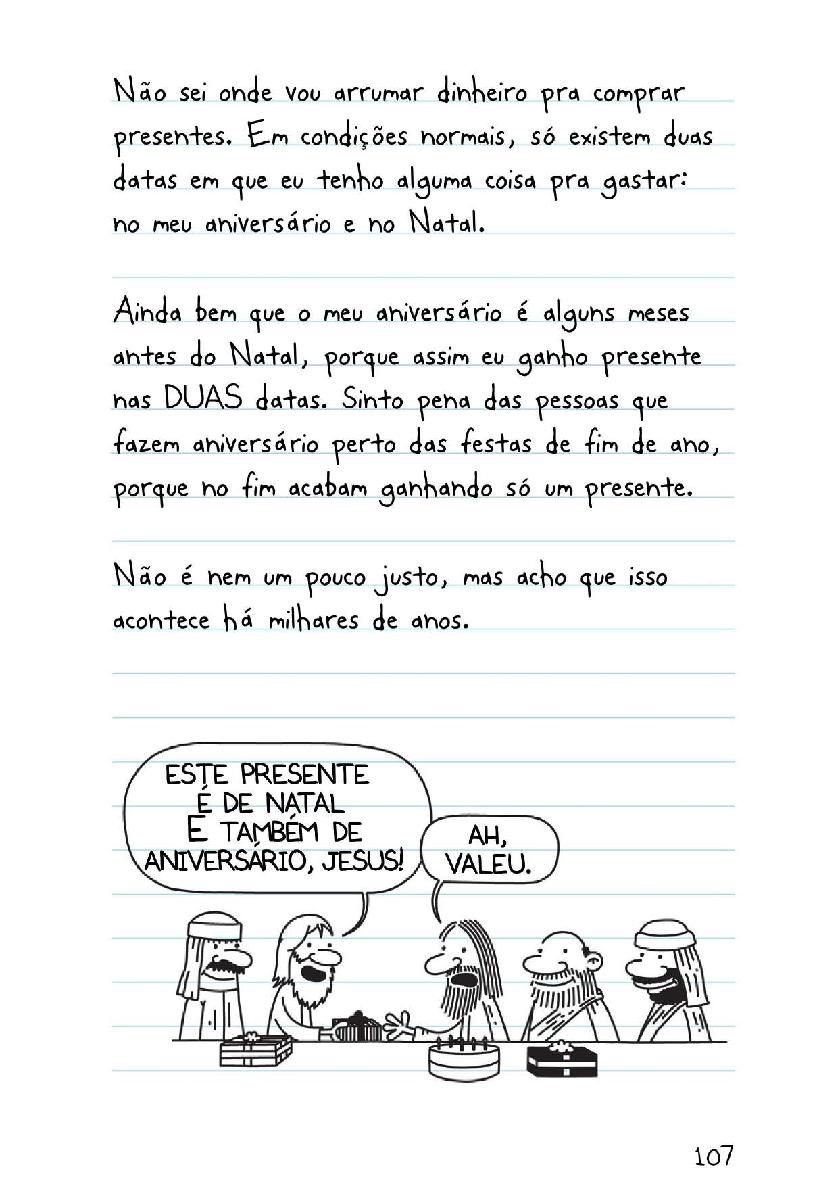 Não sei onde vou arrumar dinheiro pra comprar
presentes. Em condições normais, só existem duas
datas em que eu tenho alguma coisa pra gastar:
no meu aniversário e no Natal.
Ainda bem que o meu aniversário é alguns meses
antes do Natal, porque assim eu ganho presente
nas DUAS datas. Sinto pena das pessoas que
fazem aniversário perto das festas de fim de ano,
porque no fim acabam ganhando só um presente.
Não é nem um pouco justo, mas acho que isso
acontece há milhares de anos.
ESTE PRESENTE
É DE NATAL
E TAMBÉM DE
ANIVERSÁRIO, JESUS!
AH,
VALEU.
107